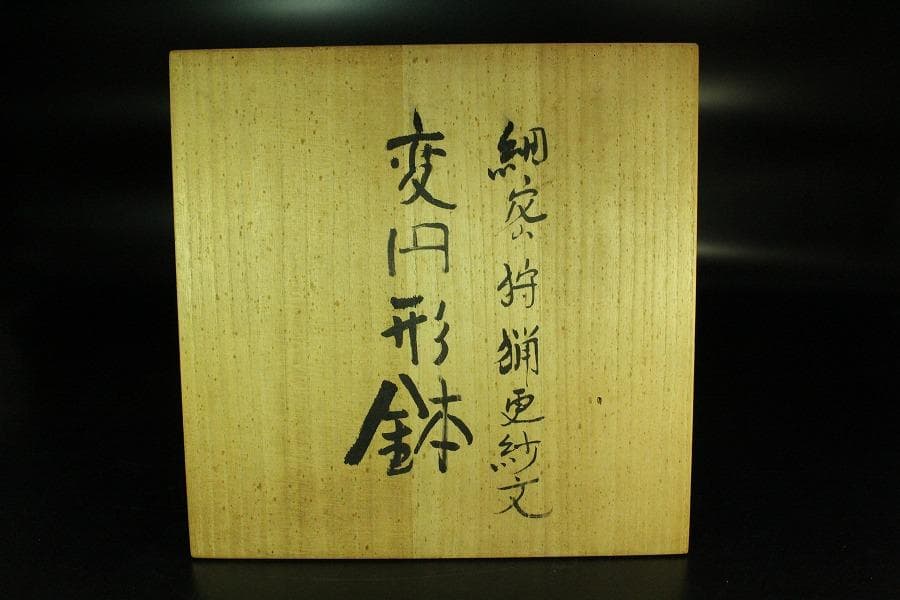 細密狩猟更紗文
変円形鉢